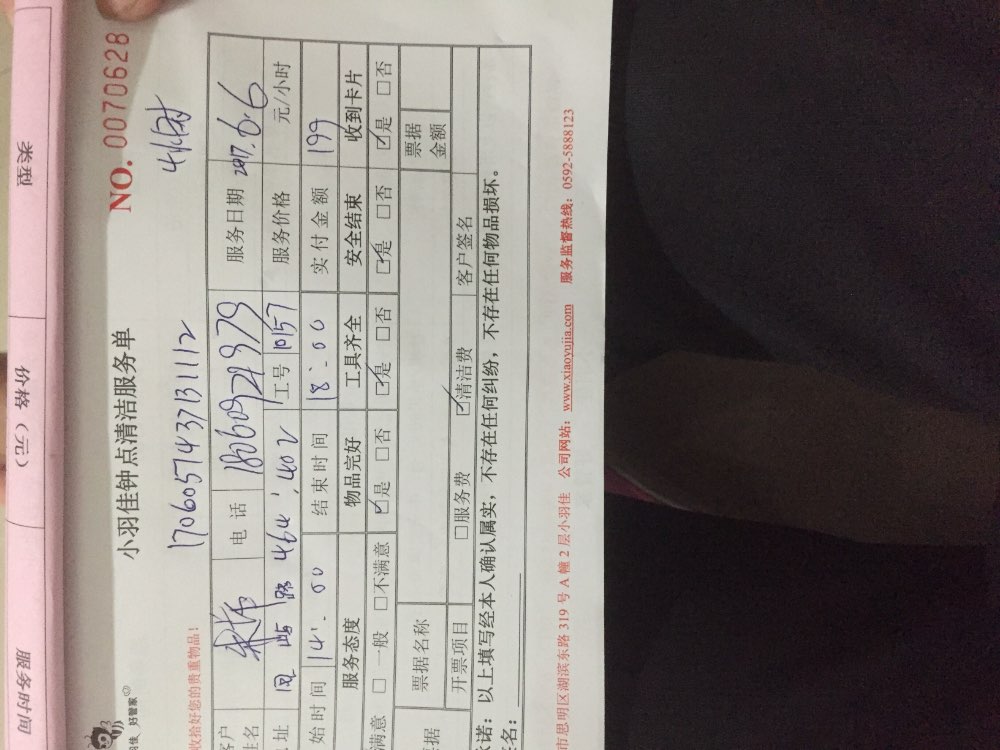 类型
价格（元）
服务时间
小羽佳钟点清洁服务单
NO. 0070628
好管家
17060574373131112
4小时
收拾好您的贵重物品！
客户
姓名
电话
18060929379
服务日期
2017.6.6
址
路464 402
工号
10157
服务价格
元/小时
始时间
14:00
结束时间
18:00
实付金额
199
服务态度
物品完好
工具齐全
安全结束
收到卡片
满意 □ 一般 □不满意
☑是 □否
☑是 □否
☑是 □否
☑是 □否
据
票据名称
票据
金额
开票项目
□服务费
☑清洁费
客户签名
承诺：以上填写经本人确认属实，不存在任何纠纷，不存在任何物品损坏。
签名：
市思明区湖滨东路 319 号 A 幢 2 层小羽佳 公司网站：www.xiaoyujia.com 服务监督热线：0592-5888123